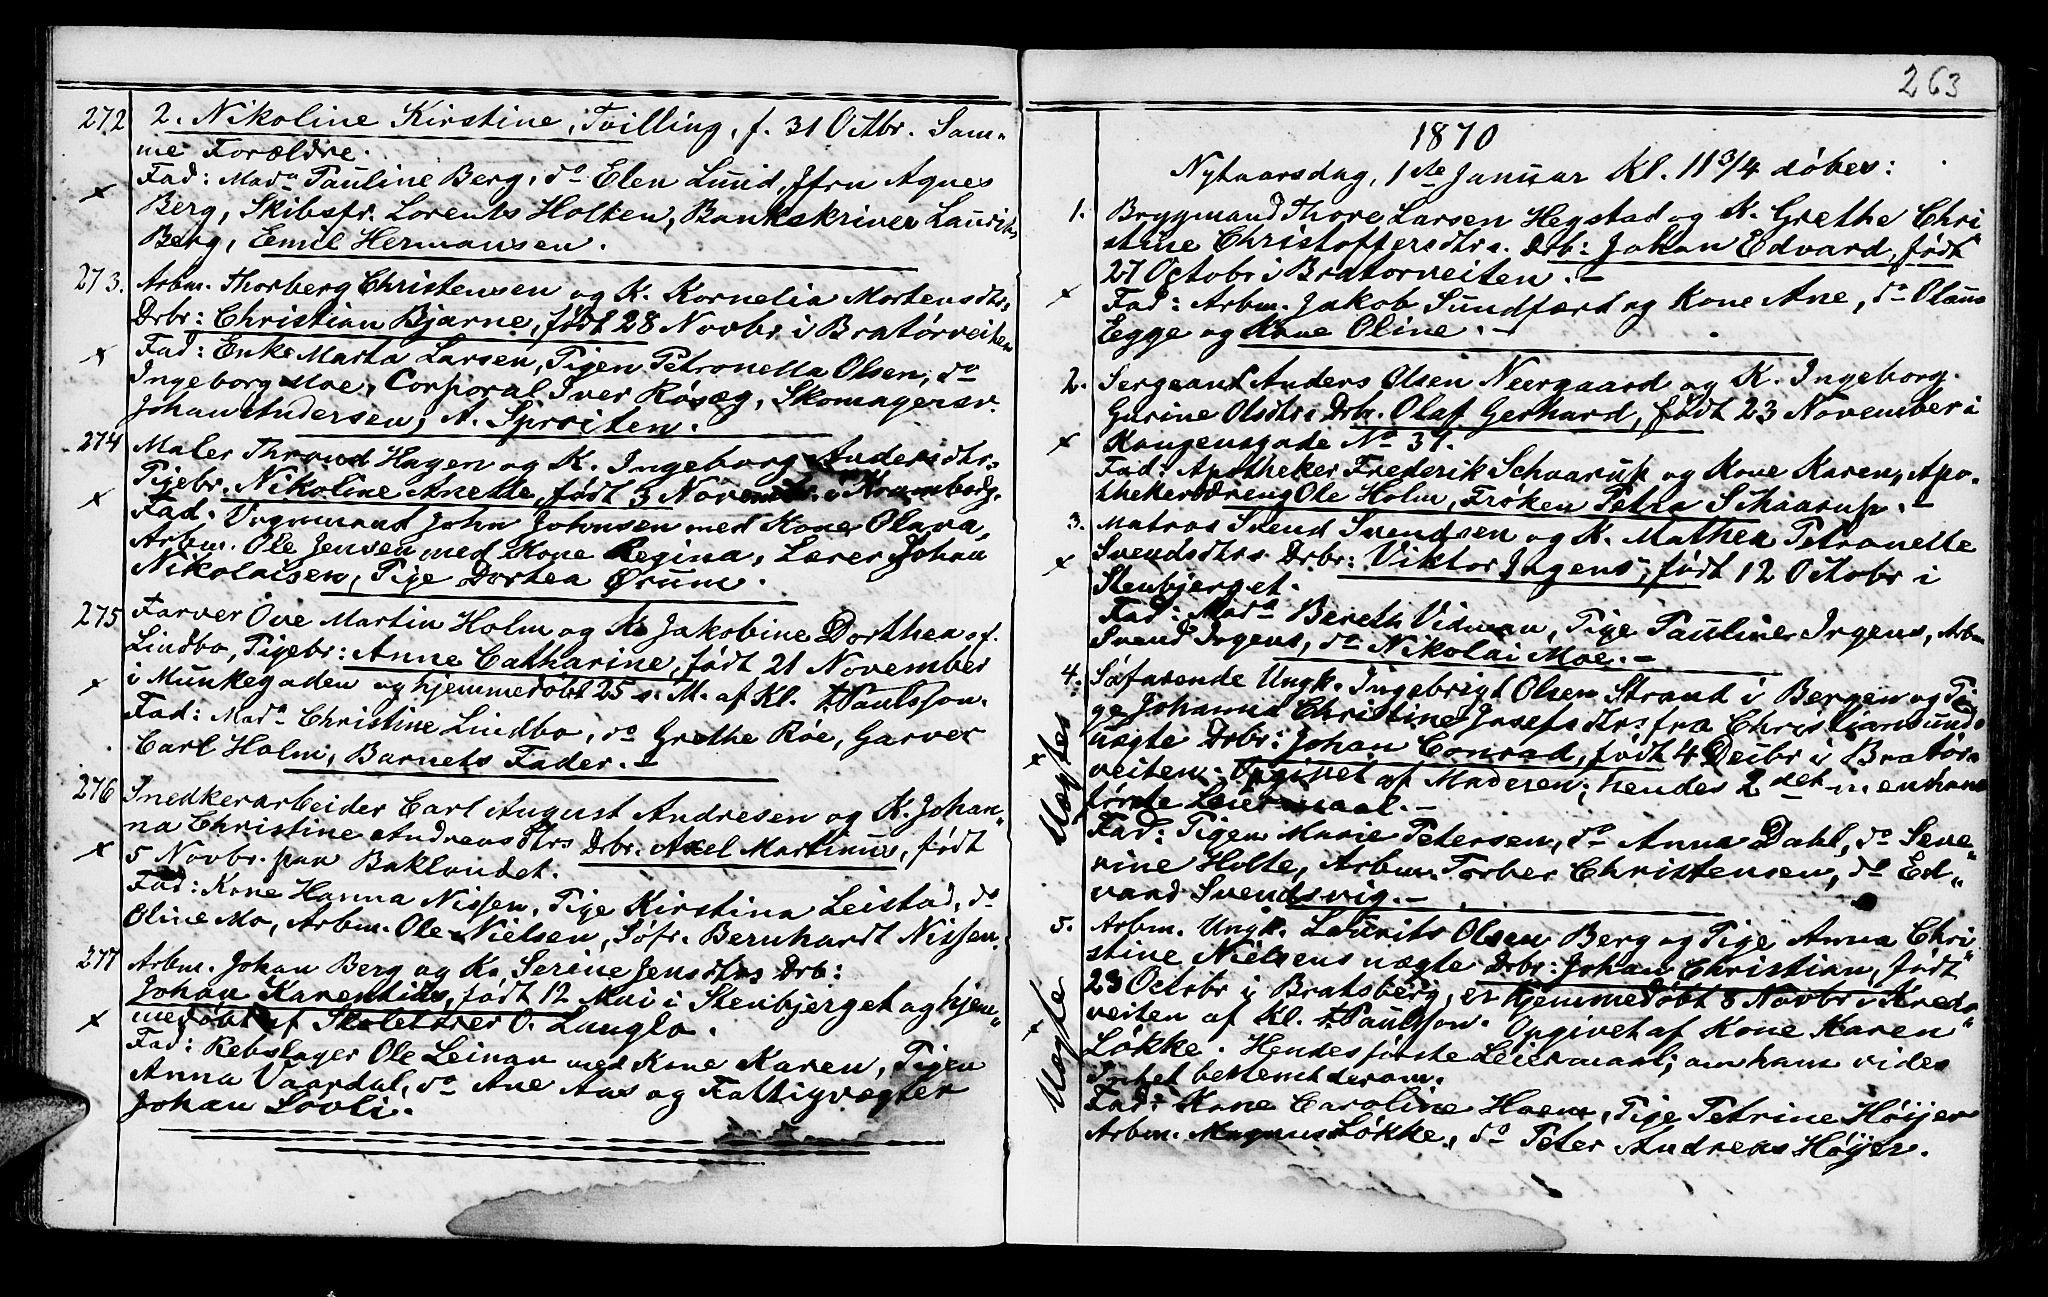 272 2. Nikoline Kirstine, Tvilling, f. 31 Octbr. Sam-
me Forældre.
Fad: Mada Pauline Berg, do Elen Lund, Jfru Agnes
Berg, Skibsfr. Lorents Holten, Bankskriver Laurits
Berg, Emil Hermansen.
273. Arbm. Thorberg Christensen og K. Kornelia Mortensdtrs
Drbr: Christian Bjarne, født 28 Novbr i Bratörveiten
Fad: Enke Marta Larsen, Tigen Petronella Olsen, do
Ingeborg Moe, Corporal Iver Røsæg, Skomagersv.
Johan Andersen, A. Sproiten.
274 Maler Thrond Hagen og K. Ingeborg Andersdtrs
Pigebr. Nikoline Anette, født 3 Novembr. i Krambodg.
Fad: Vognmand John Johnsen med Kone Olava,
Arbm. Ole Jensen med Kone Regina, Lærer Johan
Nikolaisen, Pige Dortea Ørum.
275 Farver Ove Martin Holm og K. Jakobine Dorthea f.
Lindbo, Pigebr: Anne Catharine, født 21 November
i Munkegaden og hjemmedøbt 25 s. M. af Kl. Paulsson.
Fad: Mada Christine Lindbo, do Grethe Röe, Garver
Carl Holm, Barnets Fader.
276 Snedkerarbeider Carl August Andresen og K. Johan-
na Christine Andreasdtrs Drbr. Axel Martinus, født
5 Novbr. paa Baklandet.
Fad: Kone Hanna Nissen, Pige Kirstina Leistad, do
Oline Mo, Arbm. Ole Nielsen, Söfr. Bernhardt Nissen.
277 Arbm. Johan Berg og K. Serine Jensdtrs Drb:
Johan Karentius, født 12 Mai i Stenbjerget og hjem-
medøbt af Skolelærer O. Langlo.
Fad: Rebslager Ole Leinan med Kone Karen, Pigen
Anna Vaardal, do Ane Aas og Fattigvægter
Johan Lovli.
263
1870
Nytaarsdag, 1ste Januar Kl. 11 3/4 döbes:
1. Brygmand Thore Larsen Hegstad og K. Grethe Chri
stine Christoffersdtrs. Drb: Johan Edvard, født
27 Octobr i Bratorveiten.
Fad: Arbm. Jakob Sundfærd og Kone Ane, do Olaus
Egge og Kone Oline.
2. Sergeant Anders Olsen Neergaard og K. Ingeborg
Gurine Olsdtrs Drbr. Olaf Gerhard, født 23 November i
Kongensgade No 39.
Fad: Apotheker Frederik Schaarup og Kone Karen, Apo-
thekerdreng Ole Holm, Frøken Petra Schaarup.
3. Matros Svend Svendsen og K. Mathea Petronette
Svendsdtrs Drbr: Viktor Irgens, født 12 Octobr i
Stenbjerget.
Fad: Mada Bereth Vidman, Pige Pauline Irgens, Arbm
Svend Irgens, do Nikolai Moe.
4. Søfarende Ungk. Ingebrigt Olsen Strand i Bergen og Pi
ge Johanna Christine Josefsdtrs fra Christiansunds
uægte Drbr: Johan Conrad, født 4 Decbr i Bratør-
veiten. Opgivet af Moderen; hendes 2det men hans
første Leiermaal.
Fad: Pigen Marie Petersen, do Anna Dahl, do Seve-
rine Holte, Arbm. Torber Christensen, do Ed-
vard Svendsvig.
Uægte
5. Arbm. Ungk. Laurits Olsen Berg og Pige Anna Chri
stine Nielsens uægte Drbr: Johan Christian, født
23 Octobr i Bratsberg, er hjemmedøbt 8 Novbr i Kreds-
veiten af Kl. Paulsson. Opgivet af Kone Karen
Løkke. Hendes første Leiermaal; om ham vides
Intet bestemt derom.
Fad: Kone Caroline Hoem, Pige Petrine Høijer
Arbm. Magnus Løkke, do Peter Andreas Høijer.
Uægte